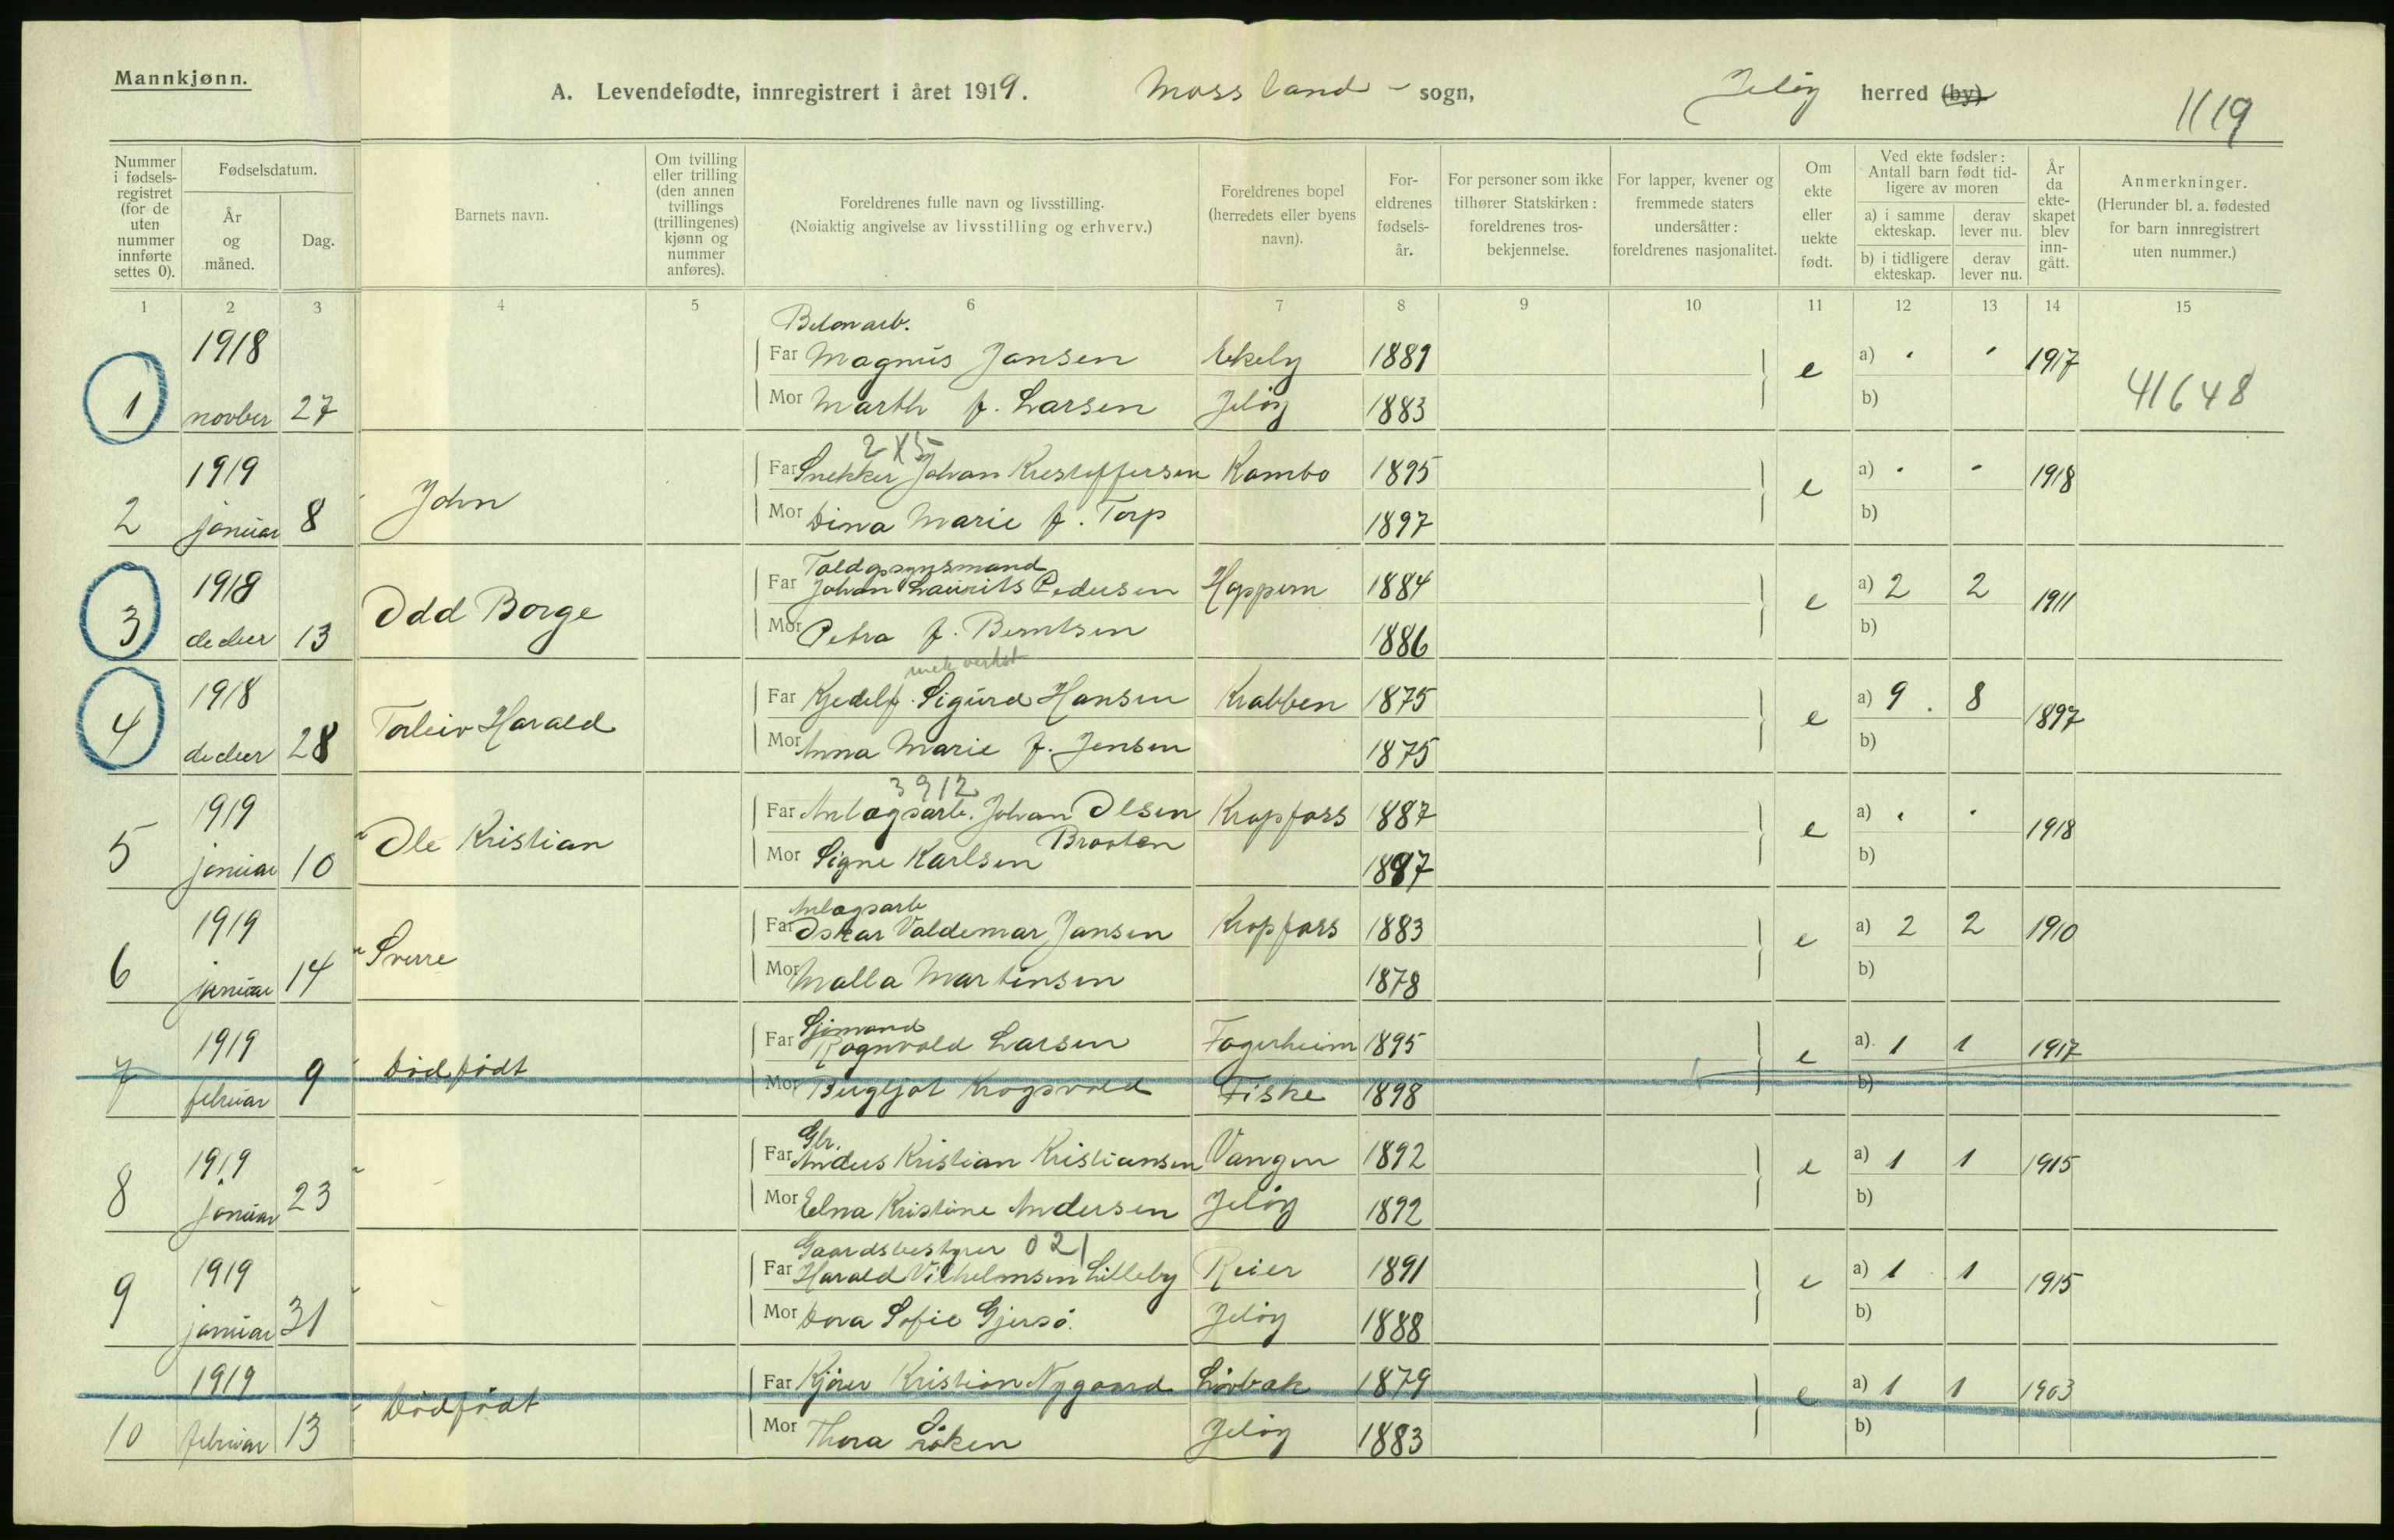 Mannkjønn.
A. Levendefødte, innregistrert i året 1919. Moss land - sogn, Jeløy herred (by)
1119
Nummer i fødsels-registret (for de uten nummer innførte settes 0).
Fødselsdatum.
År og måned.
Dag.
Barnets navn.
Om tvilling eller trilling (den annen tvillings (trillingenes) kjønn og nummer anføres).
Foreldrenes fulle navn og livsstilling.
(Nøiaktig angivelse av livsstilling og erhverv.)
Foreldrenes bopel (herredets eller byens navn).
For-eldrenes fødsels-år.
For personer som ikke tilhører Statskirken: foreldrenes tros-bekjennelse.
For lapper, kvener og fremmede staters undersåtter: foreldrenes nasjonalitet.
Om ekte eller uekte født.
Ved ekte fødsler: Antall barn født tid-ligere av moren
a) i samme ekteskap. derav lever nu.
b) i tidligere ekteskap. derav lever nu.
År da ekte-skapet blev inn-gått.
Anmerkninger.
(Herunder bl. a. fødested for barn innregistrert uten nummer.)
1 2 3 4 5 6 7 8 9 10 11 12 13 14 15
Betonarb.
1918 Far Magnus Jansen Ekely 1889 e a) 1917
1 novber 27 Mor Marth f. Larsen Jeløy 1883 b) 41648
2 X 5
1919 Far Snekker Johan Kristoffersen Kambo 1895 e a) 1918
2 januar 8 John Mor Dina Marie f. Torp 1897 b)
Toldopsynsmand
1918 Far Johan Laurits Pedersen Hoppern 1884 e a) 2 2 1911
3 decber 13 Odd Borge Mor Petra f. Berntsen 1886 b)
mek verkst
1918 Far Kjedelf. Sigurd Hansen Krabben 1875 e a) 9 8 1897
4 decber 28 Torleiv Harald Mor Anna Marie f. Jensen 1875 b)
3912
1919 Far Anlægsarb. Johan Olsen Krapfoss 1887 e a) 1918
Braaten
5 januar 10 Ole Kristian Mor Signe Karlsen 1897 b)
Anlægsarb
1919 Far Oskar Valdemar Jansen Kropfoss 1883 e a) 2 2 1910
6 januar 14 Sverre Mor Malla Martinsen 1878 b)
Sjømand
1919 Far Ragnvald Larsen Fagerheim 1895 e a) 1 1 1917
7 februar 9 Dødfødt Mor Bergljot Krogsvold Fiske 1898 b)
Gbr.
1919 Far Anders Kristian Kristiansen Vangen 1892 e a) 1 1 1915
8 januar 23 Mor Elna Kristine Andersen Jeløy 1892 b)
Gaardsbestyrer 021
1919 Far Harald Vilhelmsen Lilleby Reier 1891 e a) 1 1 1915
9 januar 31 Mor Dora Sofie Gjersø. Jeløy 1888 b)
1919 Far Kjører Kristian Nygaard Løvbak 1879 e a) 1 1 1903
10 februar 13 Dødfødt Mor Thora Jeløy 1883 b)